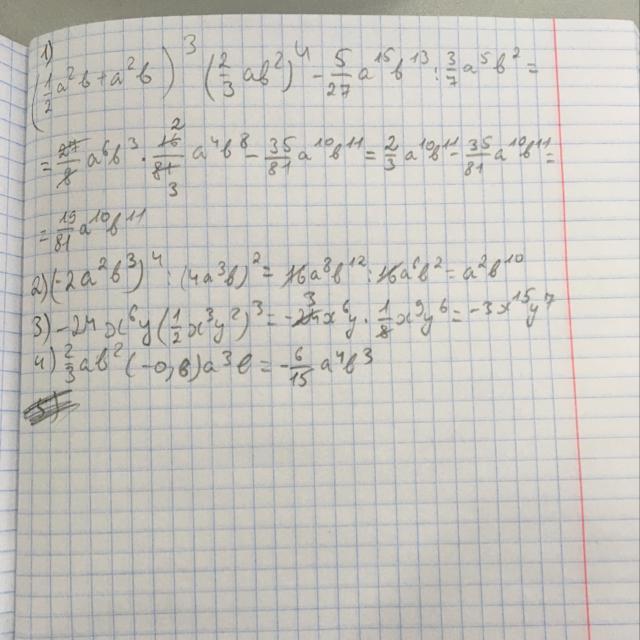 1)
(1/2 a²b + a²b)³ (2/3 ab²)⁴ - 5/27 a¹⁵b¹³ : 3/7 a⁵b² =
= 27/8 a⁶b³ · 16/81 a⁴b⁸ - 35/81 a¹⁰b¹¹ = 2/3 a¹⁰b¹¹ - 35/81 a¹⁰b¹¹ =
= 19/81 a¹⁰b¹¹
2) (-2a²b³)⁴ : (4a³b)² = 16a⁸b¹² : 16a⁶b² = a²b¹⁰
3) -24x⁶y (1/2 x³y²)³ = -24x⁶y · 1/8 x⁹y⁶ = -3x¹⁵y⁷
4) 2/3 ab² (-0, )a³b = -6/15 a⁴b³